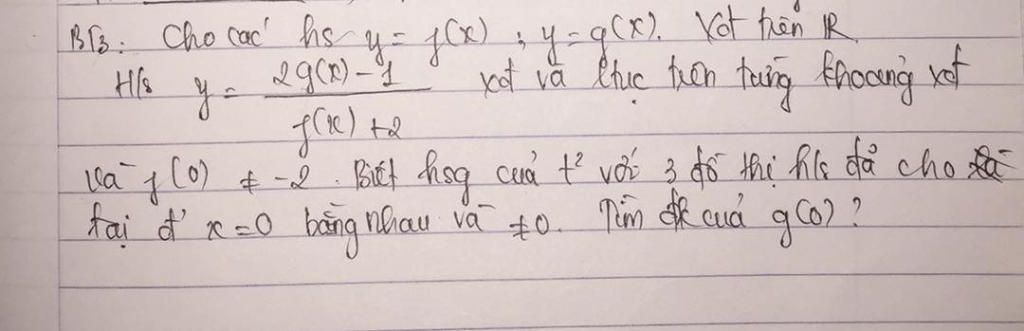 BT3: Cho các hs y = f(x) ; y = g(x). Xđt trên R.
H/s y = \frac{2g(x) - 1}{f(x) + 2} xđt và ltục trên từng khoảng xđt
và f(0) ≠ -2. Biết hsg của t² với 3 đồ thị h/s đã cho
tại đ' x = 0 bằng nhau và ≠ 0. Tìm đk của g(0)?